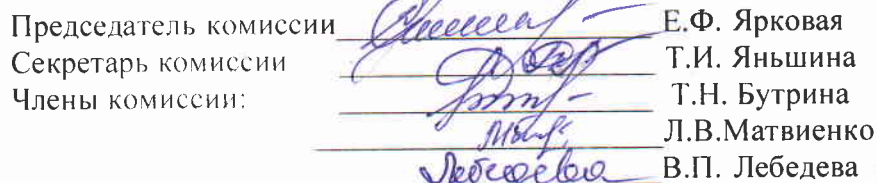 Председатель комиссии Е.Ф. Ярковая
Секретарь комиссии Т.И. Яньшина
Члены комиссии: Т.Н. Бутрина
Л.В.Матвиенко
Лебедева В.П. Лебедева